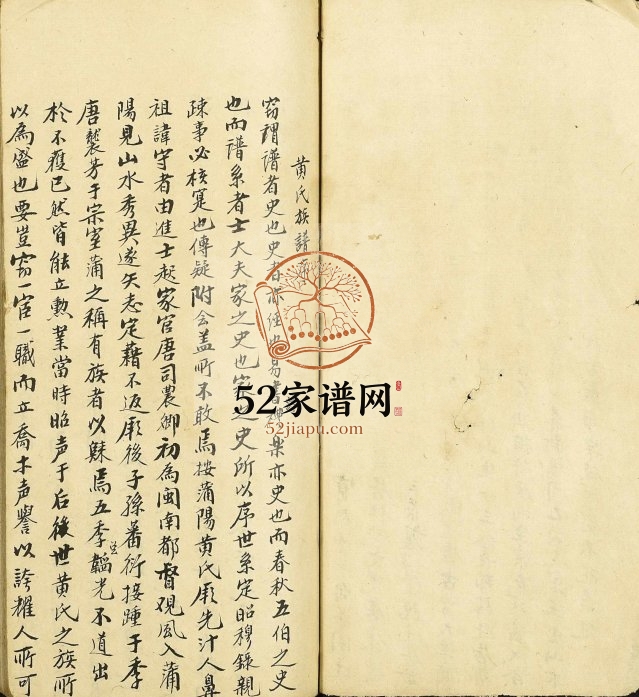 黄氏族譜
窃謂譜者史也史者亦経也易書禮樂亦史也而春秋五伯之史
也而譜系者士大夫家之史也家之史所以序世系定昭穆錄親
踈事必核寔也傳疑附会盖所不敢焉按蒲陽黄氏厥先汁人鼻
祖諱守者由進士起家官唐司農卿初為閩南都督覌風入蒲
陽見山水秀異遂矢志定藉不返厥後子孫蕃衍接踵于季
唐襲芳于宗室蒲之称有族者以鯀焉五季韜光不道出
於不獲已然皆能立勲業當時昭声于后後世黄氏之族所
以為盛也要豈窃一官一職而立喬木声譽以誇耀人所可
52家谱网
52jiapu.com